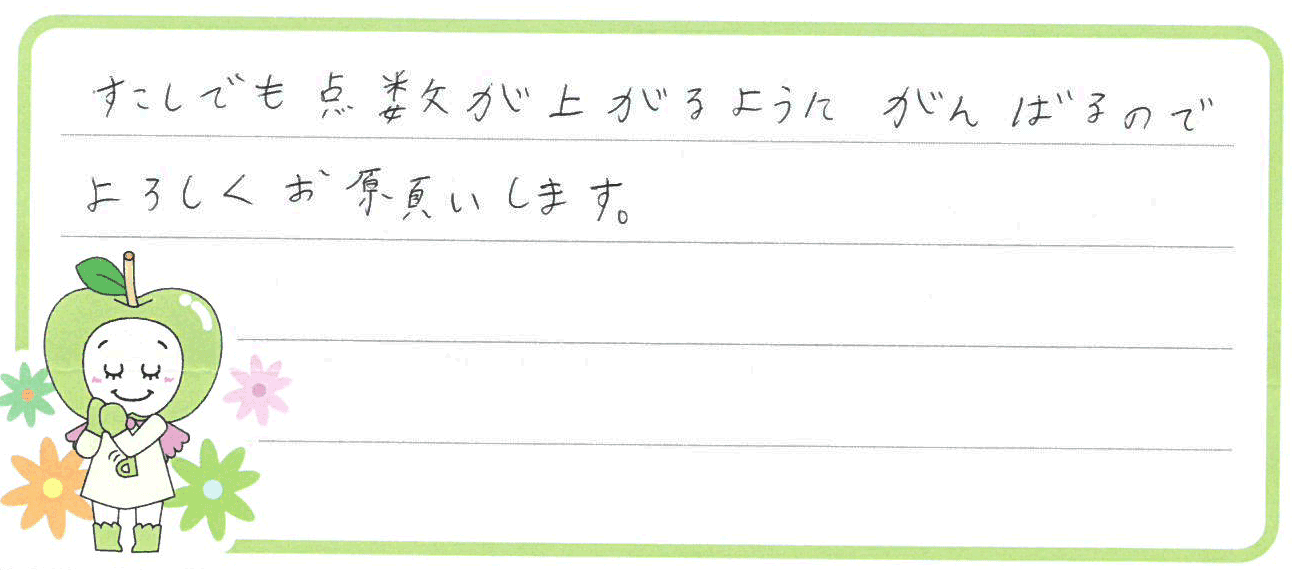 すこしでも点数が上がるように がんばるので
よろしくお願いします。